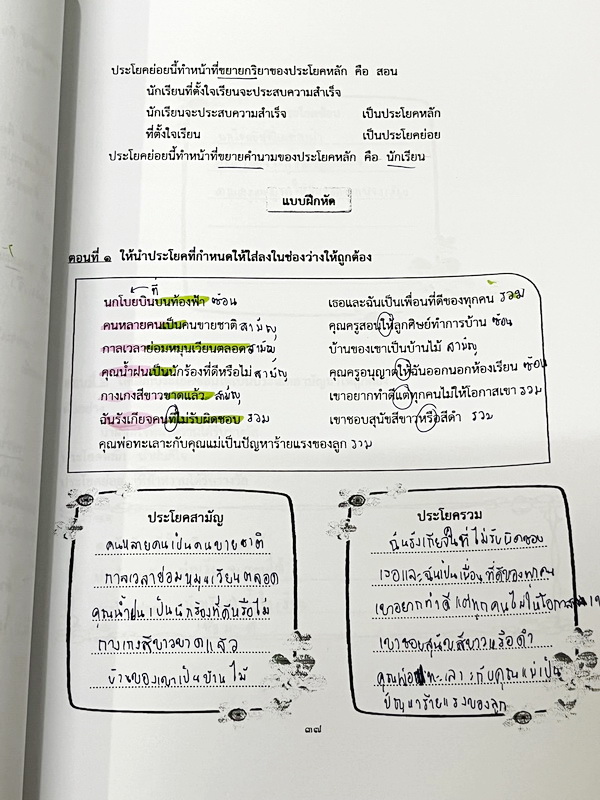 ประโยคย่อยนี้ทำหน้าที่ขยายกริยาของประโยคหลัก คือ สอน
นักเรียนที่ตั้งใจเรียนจะประสบความสำเร็จ
นักเรียนจะประสบความสำเร็จ เป็นประโยคหลัก
ที่ตั้งใจเรียน เป็นประโยคย่อย
ประโยคย่อยนี้ทำหน้าที่ขยายคำนามของประโยคหลัก คือ นักเรียน
แบบฝึกหัด
ตอนที่ ๑ ให้นำประโยคที่กำหนดให้ใส่ลงในช่องว่างให้ถูกต้อง
ที่
นกโบยบินบนท้องฟ้า ซ้อน
คนหลายคนเป็นคนขายชาติ สามัญ
กาลเวลาย่อมหมุนเวียนตลอด สามัญ
คุณน้ำฝนเป็นนักร้องที่ดีหรือไม่ สามัญ
กางเกงสีขาวขาดแล้ว สามัญ
ฉันรังเกียจคนที่ไม่รับผิดชอบ รวม
คุณพ่อทะเลาะกับคุณแม่เป็นปัญหาร้ายแรงของลูก รวม
เธอและฉันเป็นเพื่อนที่ดีของทุกคน รวม
คุณครูสอนให้ลูกศิษย์ทำการบ้าน ซ้อน
บ้านของเขาเป็นบ้านไม้ สามัญ
คุณครูอนุญาตให้ฉันออกนอกห้องเรียน ซ้อน
เขาอยากทำดีแต่ทุกคนไม่ให้โอกาสเขา รวม
เขาชอบสุนัขสีขาวหรือสีดำ รวม
ประโยคสามัญ
คนหลายคนเป็นคนขายชาติ
กาลเวลาย่อมหมุนเวียนตลอด
คุณน้ำฝนเป็นนักร้องที่ดีหรือไม่
กางเกงสีขาวขาดแล้ว
บ้านของเขาเป็นบ้านไม้
ประโยครวม
ฉันรังเกียจ ที่ไม่รับผิดชอบ
เธอและฉันเป็นเพื่อนที่ดีของทุกคน
เขาอยากทำดีแต่ทุกคนไม่ให้โอกาส
เขาชอบสุนัขสีขาวหรือดำ
คุณพ่อทะเลาะกับคุณแม่เป็น
ปัญหาร้ายแรงของลูก
๓๗